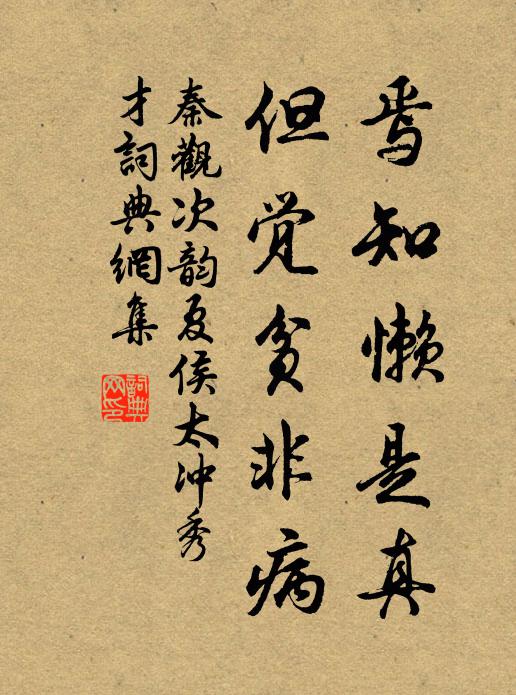 焉知懒是真
但觉贫非病
秦觀次韵夏侯太冲秀
才詞典網集
詞典
网印